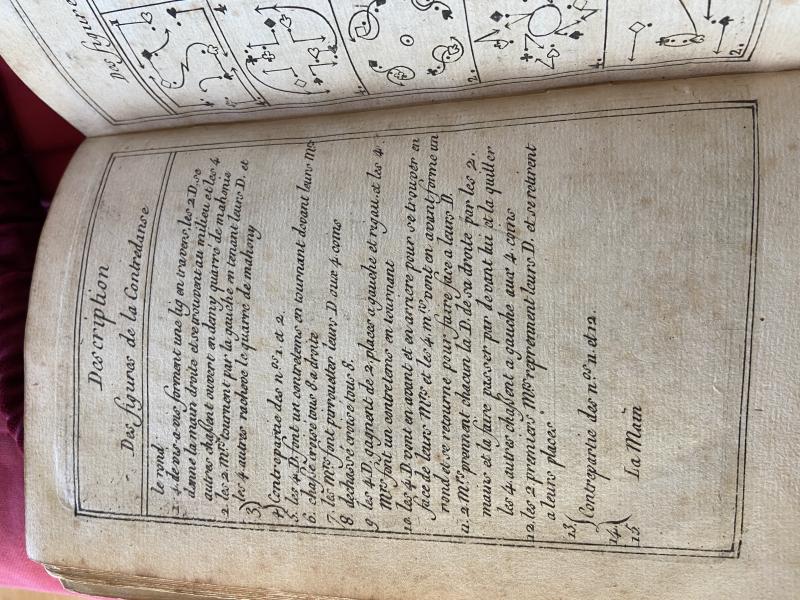 Des figures
Description
Des figures de la Contredanse
le rond
1. 4 de vis-a-vis forment une lig en travers, les 2 D. se
donne la main droite et se trouvent au milieu et les 4
autres chassent ouvert en demy quarré de mahonie
2. les 2 Mrs tournent par la gauche en tenant leurs D. et
les 4 autres racheve le quarré de mahony
3
4 Contrepartie des n.os 1 et 2.
5. les 4 D. font un contretems en tournant devant leurs Mrs
6. chassé croisé tous 8 a droite
7. les Mrs font pirouetter leurs D aux 4 coins
8 dechassé croisé tous 8.
9. les 4 D. gagnent de 2 places a gauche et rigau. et les 4.
Mrs font un contretems en tournant
10. les 4 D vont en avant et en arriere pour se trouver en
face de leurs Mrs et les 4 Mrs vont en avant forme un
rond et se retourne pour faire face a leurs D.
11. 2 Mrs prennent chacun la D. de sa droite par les 2.
mains et la faire passer par devant lui et la quitter
les 4 autres chassent a gauche aux 4 coins
12. les 2 premiers Mrs reprennent leurs D. et se trouvent
a leurs places
13.
14. Contrepartie des n.os 11 et 12.
15 La Main